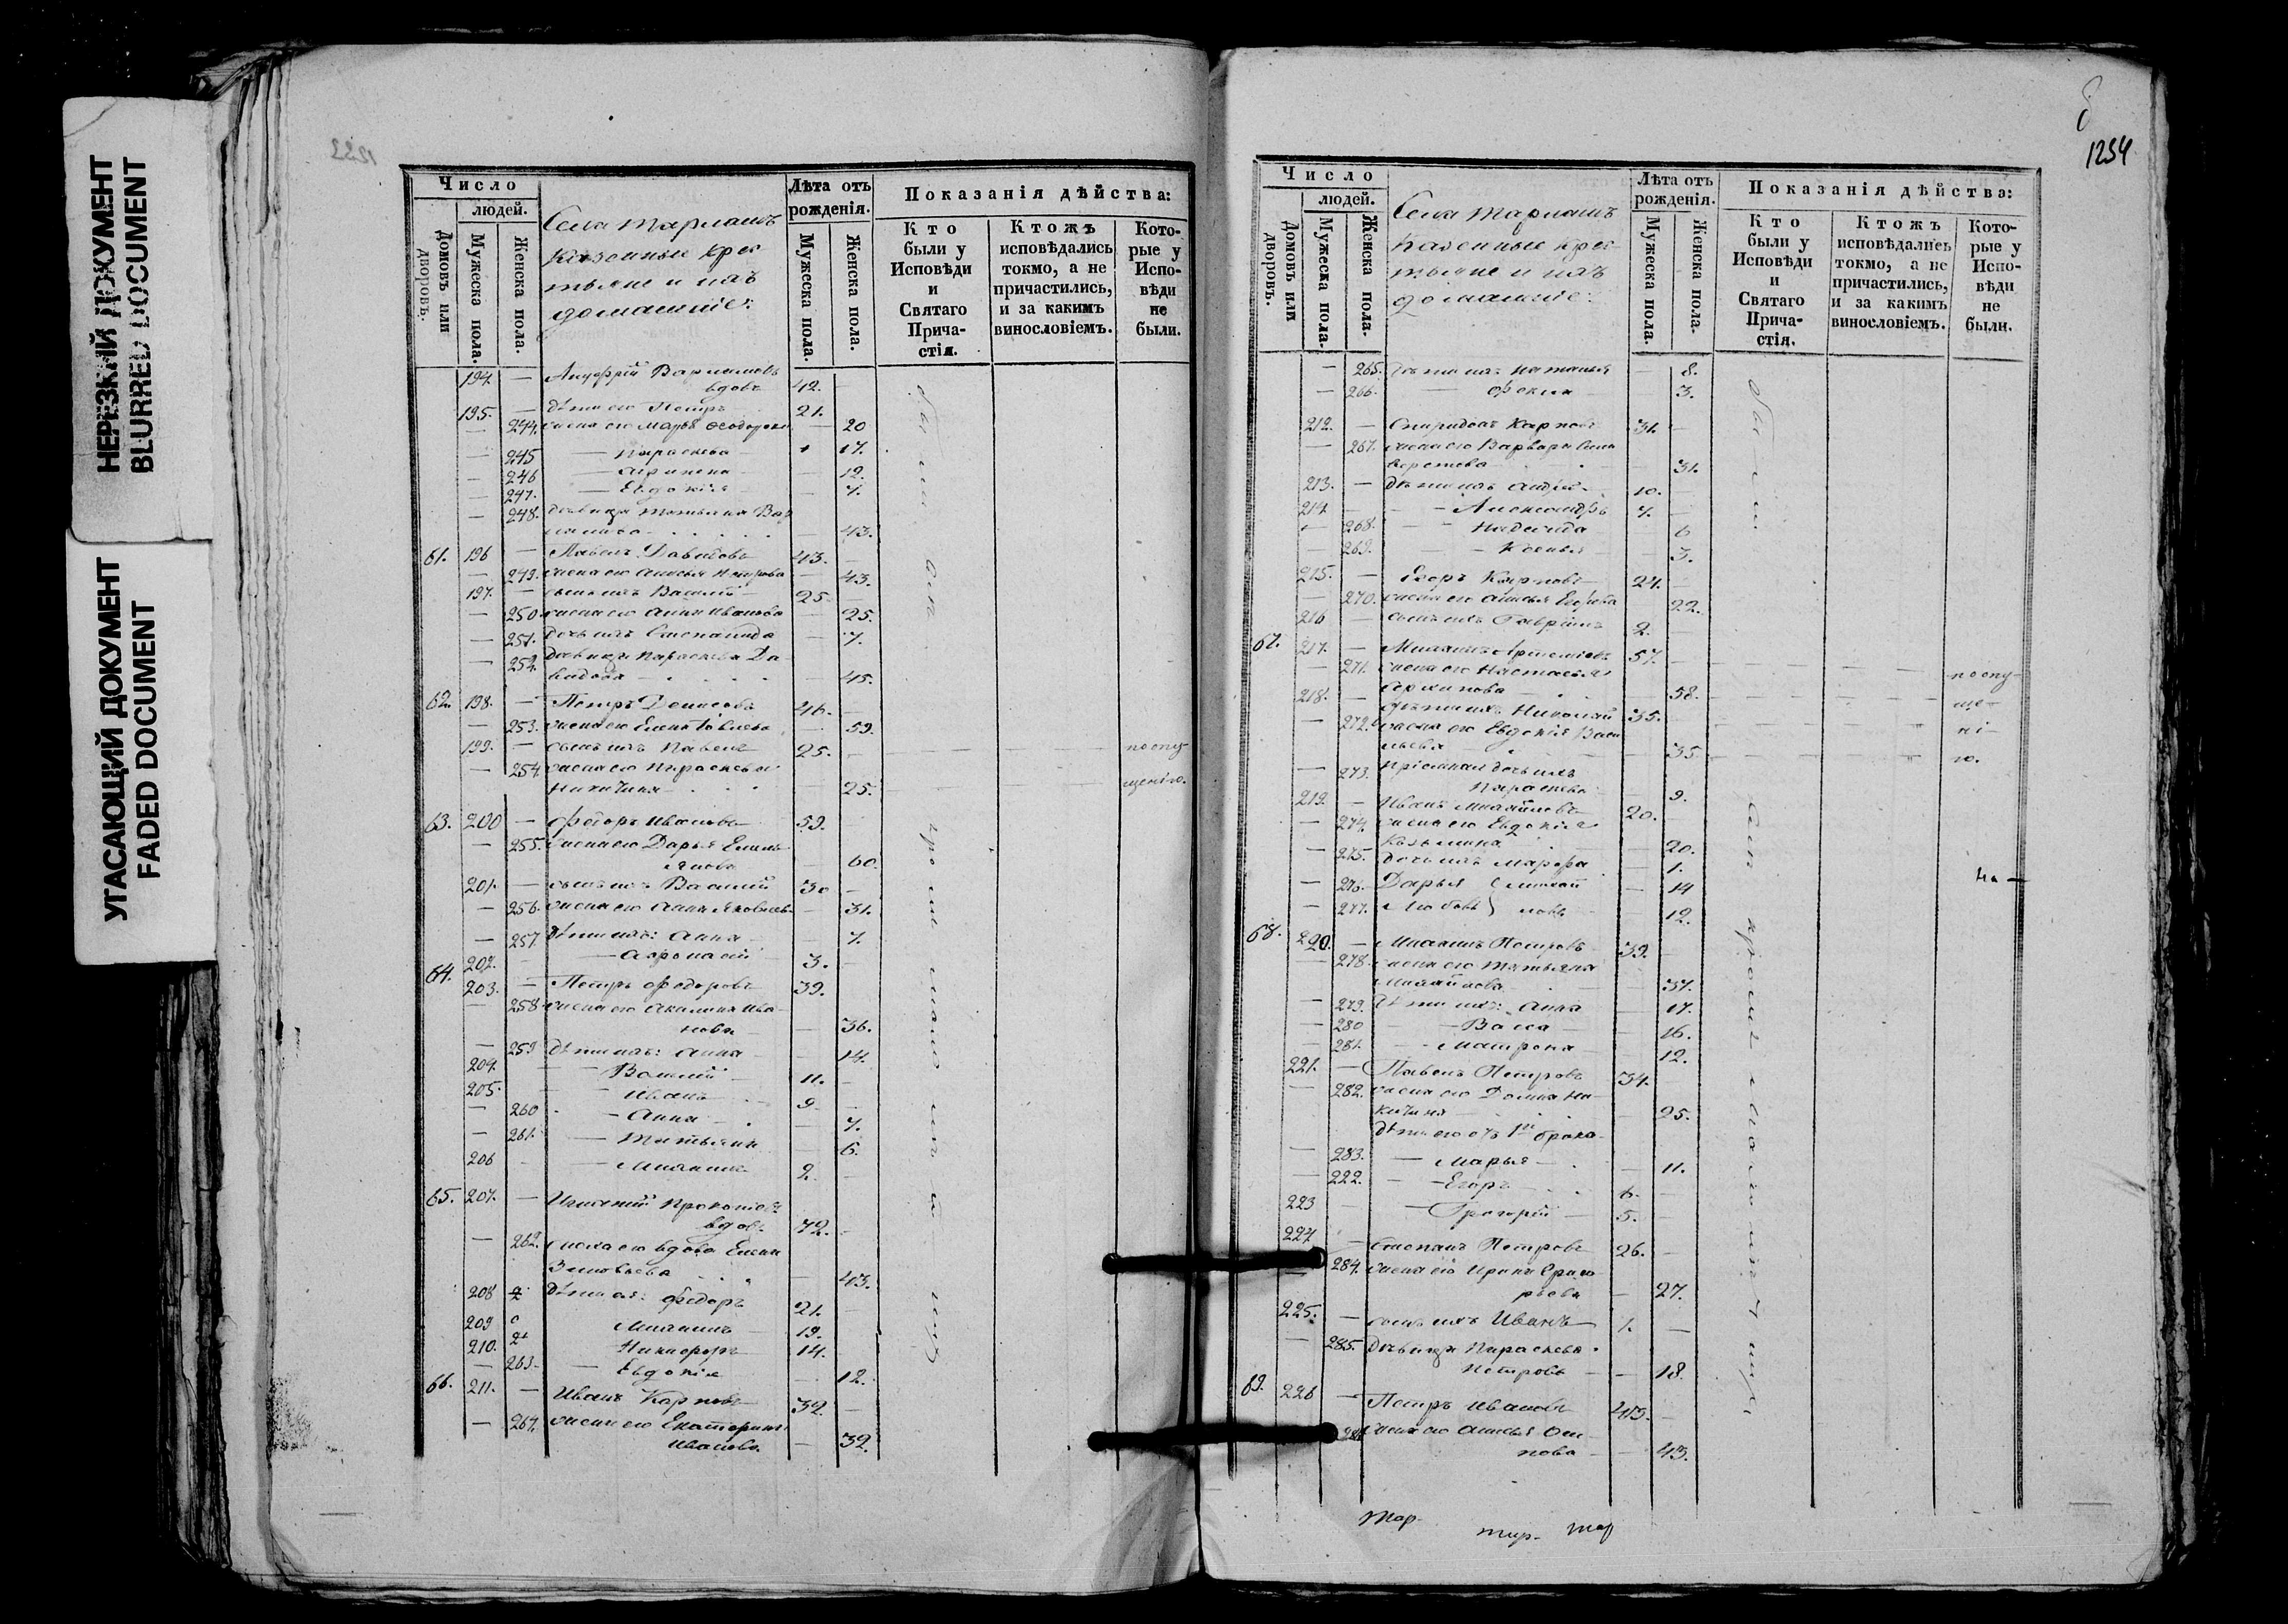 НЕРЕЗКИЙ ДОКУМЕНТ
BLURRED DOCUMENT
УГАСАЮЩИЙ ДОКУМЕНТ
FADED DOCUMENT
1254
Число
людей.
Домовъ или дворовъ.
Мужеска пола.
Женска пола.
Села
Казенные крес
тьяне и ихъ
домашніе:
Лѣта отъ рожденія.
Мужеска пола.
Женска пола.
Показанія дѣйства:
Кто были у Исповѣди и Святаго Прича-стія.
Ктожъ исповѣдались токмо, а не причастились, и за какимъ винословіемъ.
Кото-рые у Испо-вѣди не были.
194. — Варламовъ
вдовъ 42.
195. — дѣти его Петръ 21.
— 244. жена его Марья Феодорова — 20
— 245 — Параскева — 17.
— 246 — Агрипена — 12.
— 247. — Евдокія — 7.
— 248. девица Татьяна Вар
ламова — 43.
61. 196 — Павелъ Давидовъ 43. —
— 249. жена его Анисья Петрова — 43.
197. — сынъ ихъ Василій 25. —
— 250 жена его Анна Иванова — 25.
— 251. дочь ихъ Степанида — 7.
— 252. девица Параскева Да-
видова — 45.
62. 198. — Петръ Денисовъ 46. —
— 253. жена его Елена — 59.
199. — сынъ ихъ Павелъ 25. — по опу-
— 254. жена его Параскева
Никитина — 25. щенію.
63. 200 — Федоръ Ивановъ 59.
— 255. жена его Дарья Емель
янова — 60.
201. — сынъ ихъ Василій 30 —
— 256. жена его Анна Яковлев. — 31.
— 257 дѣти ихъ: Анна — 7.
202. — Афонасій 3. —
64. 203. — Петръ Федоровъ 39.
— 258 жена его Акилина Ива
нова — 36.
— 259 дѣти ихъ: Анна — 14.
204. — Василій 11. —
205. — Иванъ 9 —
— 260 — Анна — 7.
— 261. — Татьяна — 6.
206 — Михаилъ 2. —
65. 207. — Игнатій Прокопіевъ
вдов. 72. —
— 262. сноха его вдова Елена
Зиновьева — 43.
208 дѣти ея: Федоръ 21. —
209 Михаилъ 19.
210. Никифоръ 14.
— 263. — Евдокія — 12.
66. 211. — Иванъ Карповъ 32. —
— 264. жена его Екатерина
Иванова — 32.
были
оп
кромѣ
Число
людей.
Домовъ или дворовъ.
Мужеска пола.
Женска пола.
Села
Казенные крес
тьяне и ихъ
домашніе:
Лѣта отъ рожденія.
Мужеска пола.
Женска пола.
Показанія дѣйства:
Кто были у Исповѣди и Святаго Прича-стія.
Ктожъ исповѣдались токмо, а не причастились, и за какимъ винословіемъ.
Кото-рые у Испо-вѣди не были.
— 265. дѣти ихъ Наталья — 8.
— 266. — Фекла — 3.
212. — Спиридонъ Карповъ 31. —
— 267. жена его Варвара Сели
верстова — 31.
213. — дѣти ихъ Андрей 10. —
214. — Александръ 7. —
— 268. — Надежда — 6
— 269. — Ксенья — 3.
215. — Егоръ Карповъ 24. —
— 270. жена его Анисья Егорова — 22.
216 — сынъ ихъ Гаврилъ 2. —
67. 217. — Михаилъ Артеміевъ 57. —
— 271. жена его Настасья по опу-
— 58.
218. — дѣти ихъ Николай 35. — ще-
— 272. жена его Евдокія Васи ні-
льева — 35 ю.
— 273. пріемная дочь ихъ
Параскева — 9.
219. — Иванъ Михайловъ 20. —
— 274. жена его Евдокія
Козьмина — 20.
— 275. дочь ихъ Марфа — 1.
— 276. Дарья } Михай — 14
— 277. Любовь } ловы — 12.
68. 220. — Михаилъ Петровъ 39. —
— 278. жена его Татьяна
Михайлова — 37.
— 279. дѣти ихъ: Анна — 17.
— 280 — Васса — 16.
— 281. — Матрона — 12.
221. — Павелъ Петровъ 34. —
— 282. жена его Домна Ни-
китина — 25.
дѣти его отъ 1го брака
— 283. — Марья — 11.
— 222. — Егоръ 6. —
223 — Григорій 5. —
224 — Степанъ Петровъ 26. —
— 284. жена его Ирина Григо
рьева — 27.
225. — сынъ ихъ Иванъ 1. —
— 285. девица Параскева
Петрова — 18.
69. 226 — Петръ Ивановъ 43. —
жена его Анисья Оси
пова — 43.
были
кромѣ